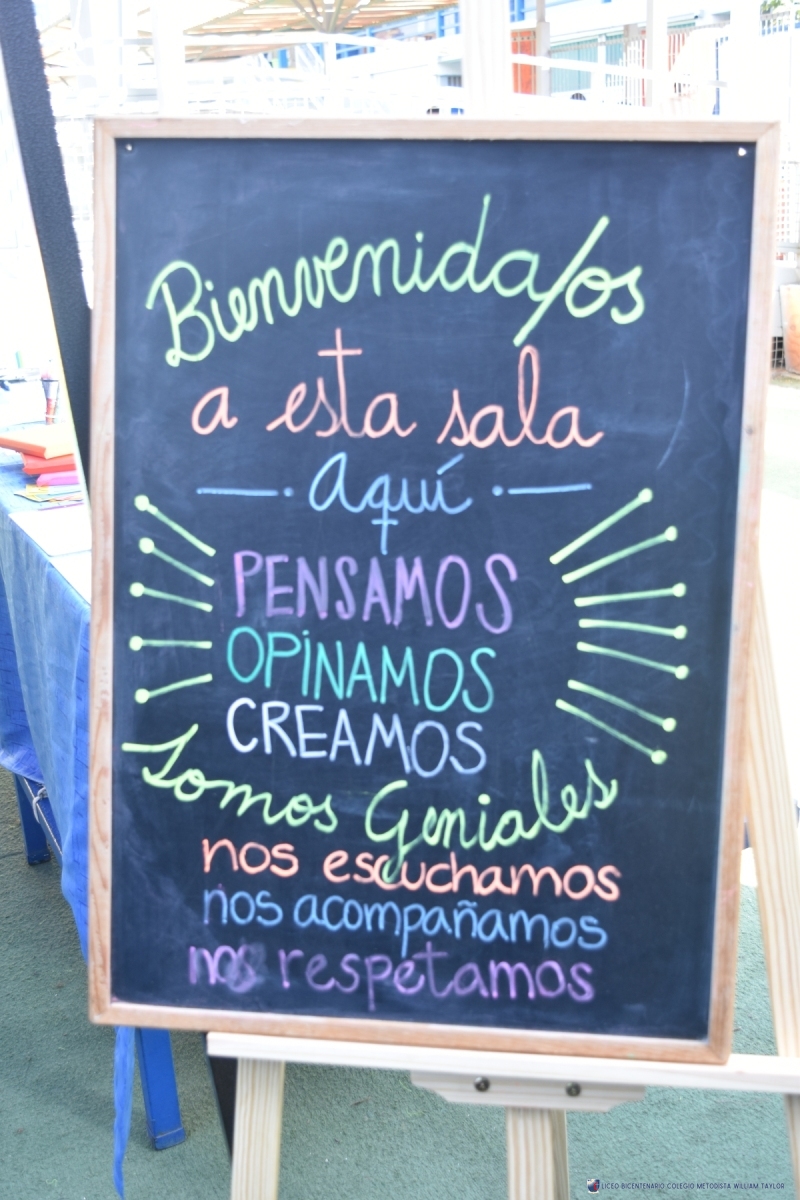 Bienvenida/os
a esta sala
Aquí
PENSAMOS
OPINAMOS
CREAMOS
Somos Geniales
nos escuchamos
nos acompañamos
nos respetamos
LICEO BICENTENARIO COLEGIO METODISTA WILLIAM TAYLOR